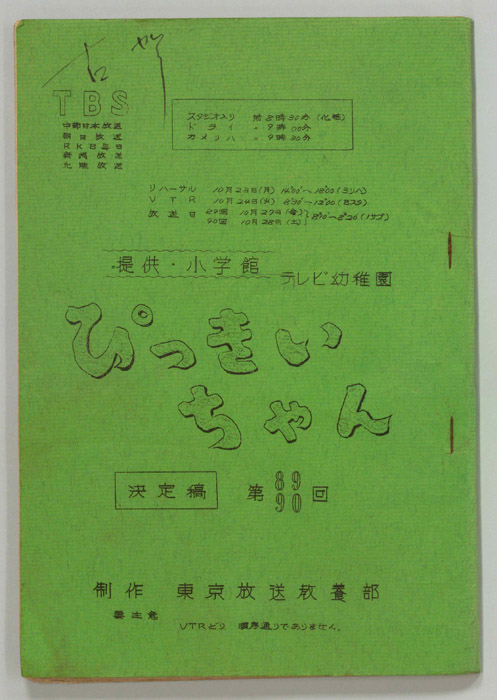 TBS
中部日本放送
朝日放送
RKB毎日
新潟放送
北陸放送
スタジオ入り 前8時30分 (化粧)
ドライ 〃 9時00分
カメリハ 〃 9時30分
リハーサル 10月23日(月) 14°00'〜18°00
VTR 10月24日(火) 8°30'〜12°00 (Bスタ)
放送日 89回 10月27日(金)
90回 10月28日(土) 8°10'〜8°26'
提供・小学館
テレビ幼稚園
ぴっきい
ちゃん
決定稿 第89 90回
制作 東京放送教養部
要注意
VTRどり 順序通りでありません。